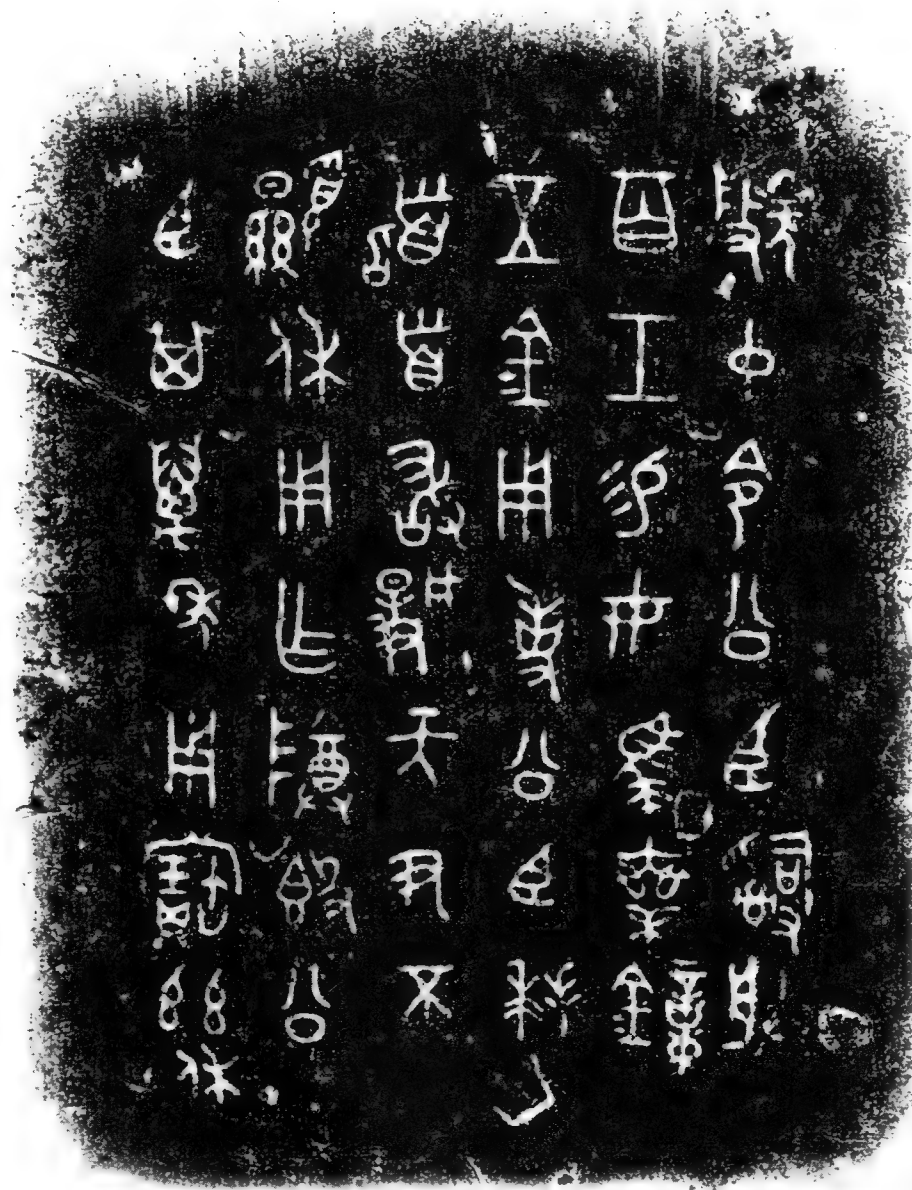 虢中令公臣𤔲朕
百工易女馬乘鐘
五金用事公臣拜
𩒨首敢揚天尹不
顯休用乍尊𣪘公
臣其萬年用寶茲休